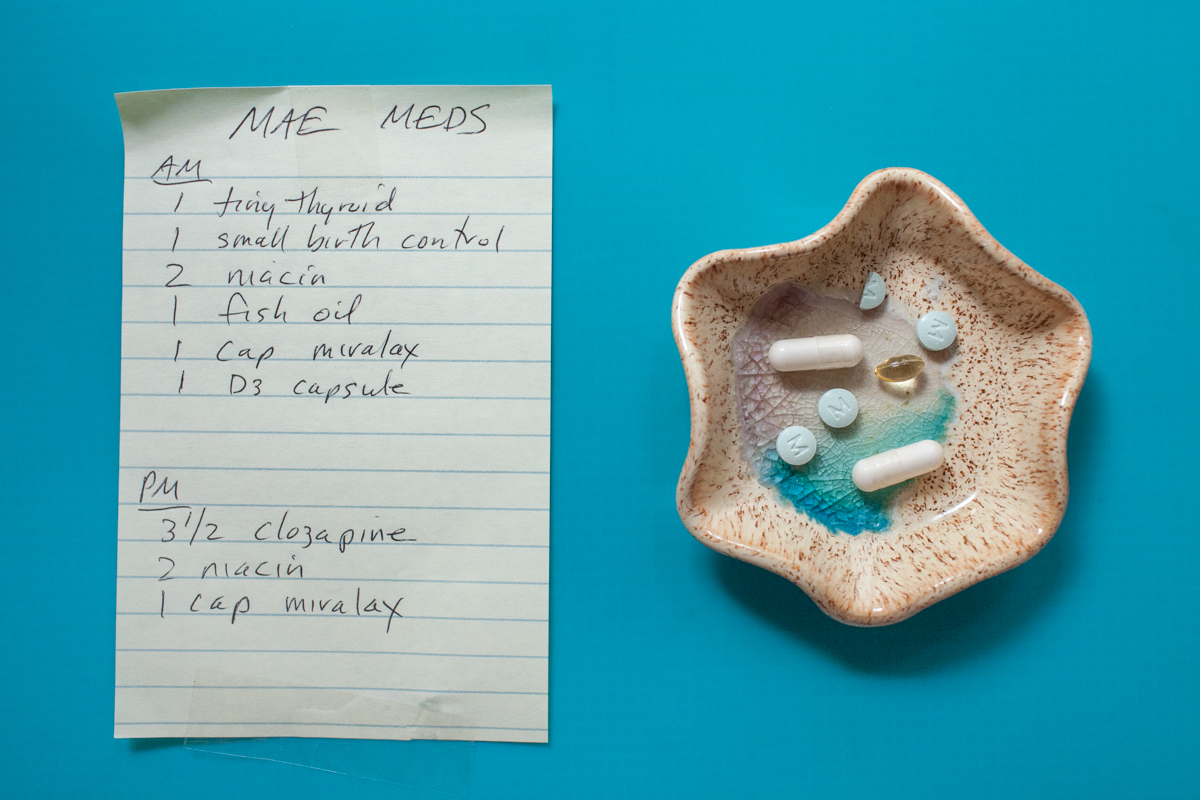 MAE MEDS
AM
1 tiny thyroid
1 small birth control
2 niacin
1 fish oil
1 cap miralax
1 D3 capsule
PM
3 1/2 clozapine
2 niacin
1 cap miralax
M
M
M
M